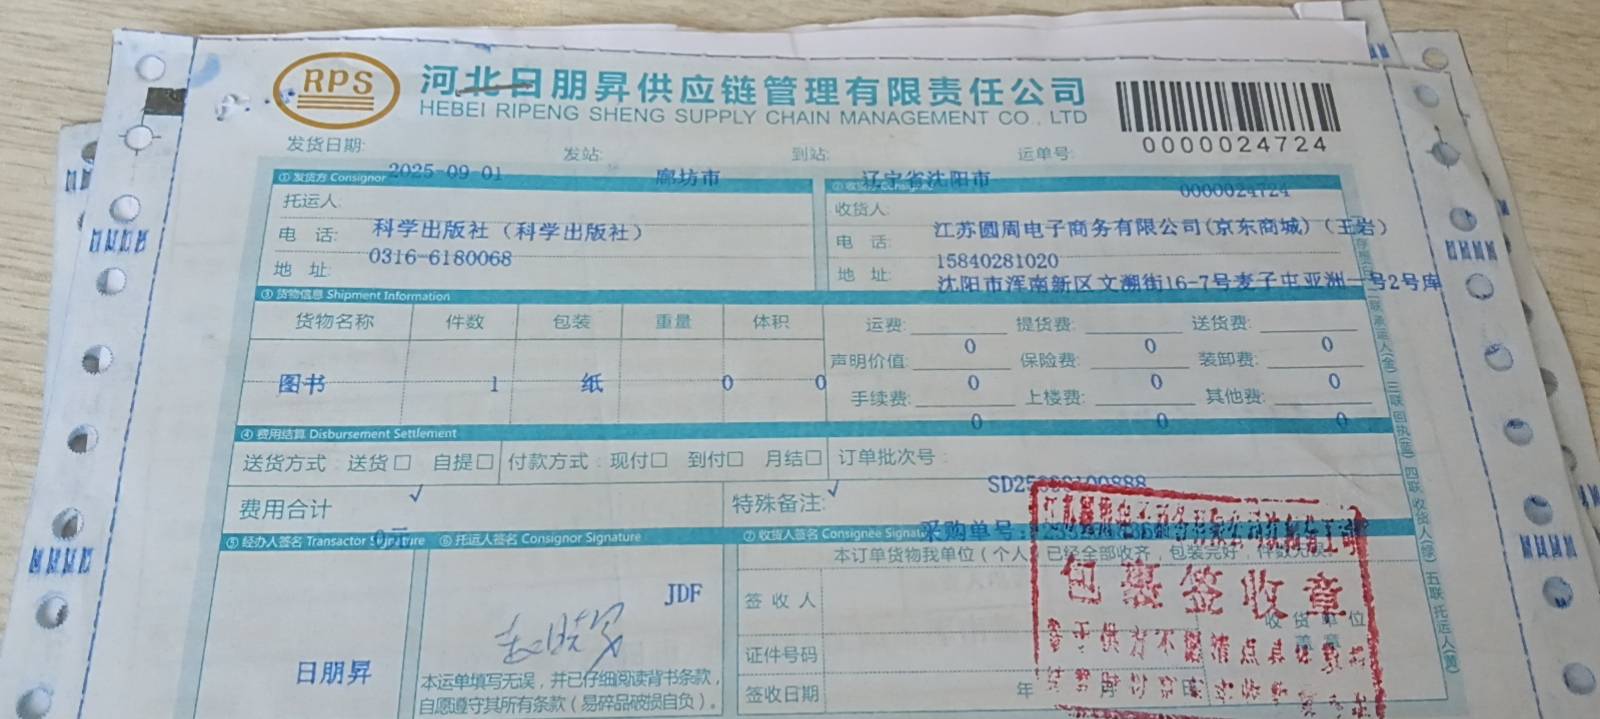 RPS
河北日朋昇供应链管理有限责任公司
HEBEI RIPENG SHENG SUPPLY CHAIN MANAGEMENT CO., LTD
0000024724
发货日期: 发站: 到站: 运单号:
2025-09-01 廊坊市 辽宁省沈阳市 0000024724
①发货方 Consignor ②收货
托运人 收货人:
科学出版社（科学出版社） 江苏圆周电子商务有限公司(京东商城)（王岩）
电 话: 电 话:
0316-6180068 15840281020
地 址: 地 址:
沈阳市浑南新区文溯街16-7号麦子屯亚洲一号2号库
③货物信息 Shipment Information
货物名称 件数 包装 重量 体积 运费: 提货费: 送货费:
0 0 0
声明价值: 保险费: 装卸费:
图书 1 纸 0 0 0 0 0
手续费: 上楼费: 其他费:
0 0 0
④费用结算 Disbursement Settlement
送货方式: 送货□ 自提□ 付款方式: 现付□ 到付□ 月结□ 订单批次号:
√ √
费用合计 特殊备注:
⑤经办人签名 Transactor Signature ⑥托运人签名 Consignor Signature ⑦收货人签名 Consignee Signatu
采购单号:
本订单货物我单位(个人)已经全部收齐，包装完好，件数无误。
包裹签收章
JDF
签收人
收货单位
盖章
证件号码
日朋昇
本运单填写无误，并已仔细阅读背书条款，
自愿遵守其所有条款(易碎品破损自负)。
签收日期 年